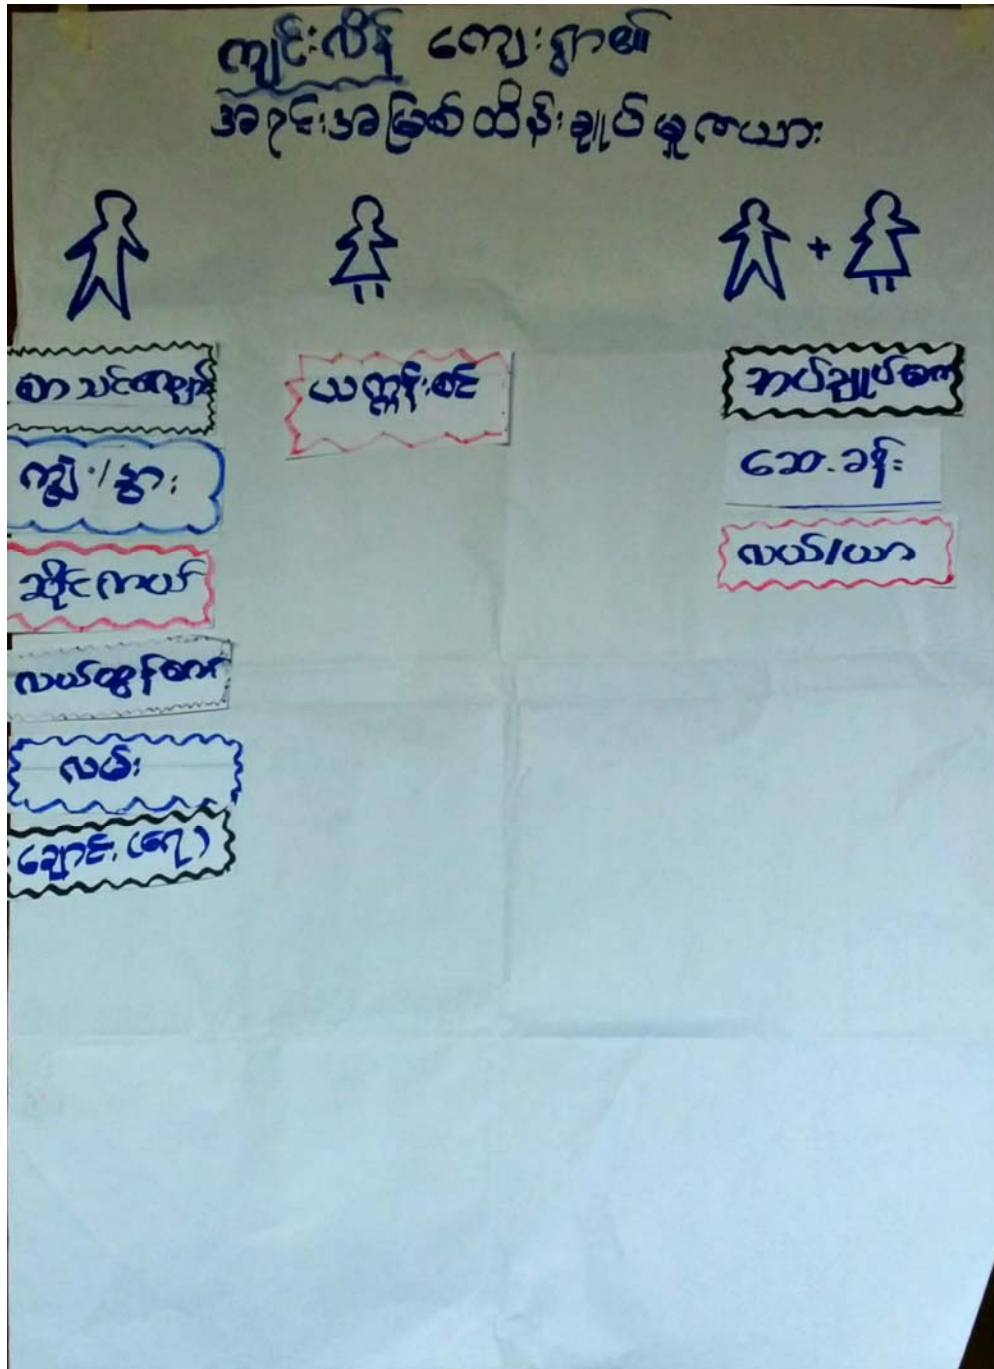 ကျင်းလိန် ကျေးရွာ၏
အရင်းအမြစ်ထိန်းချုပ်မှုဇယား
+
စာသင်ကျောင်း
ကျွဲ/နွား
ဆိုင်ကယ်
လယ်ထွန်စက်
လမ်း
ချောင်း(ရေ)
ယက္ကန်းစင်
အပ်ချုပ်စက်
ဆေးခန်း
လယ်/ယာ